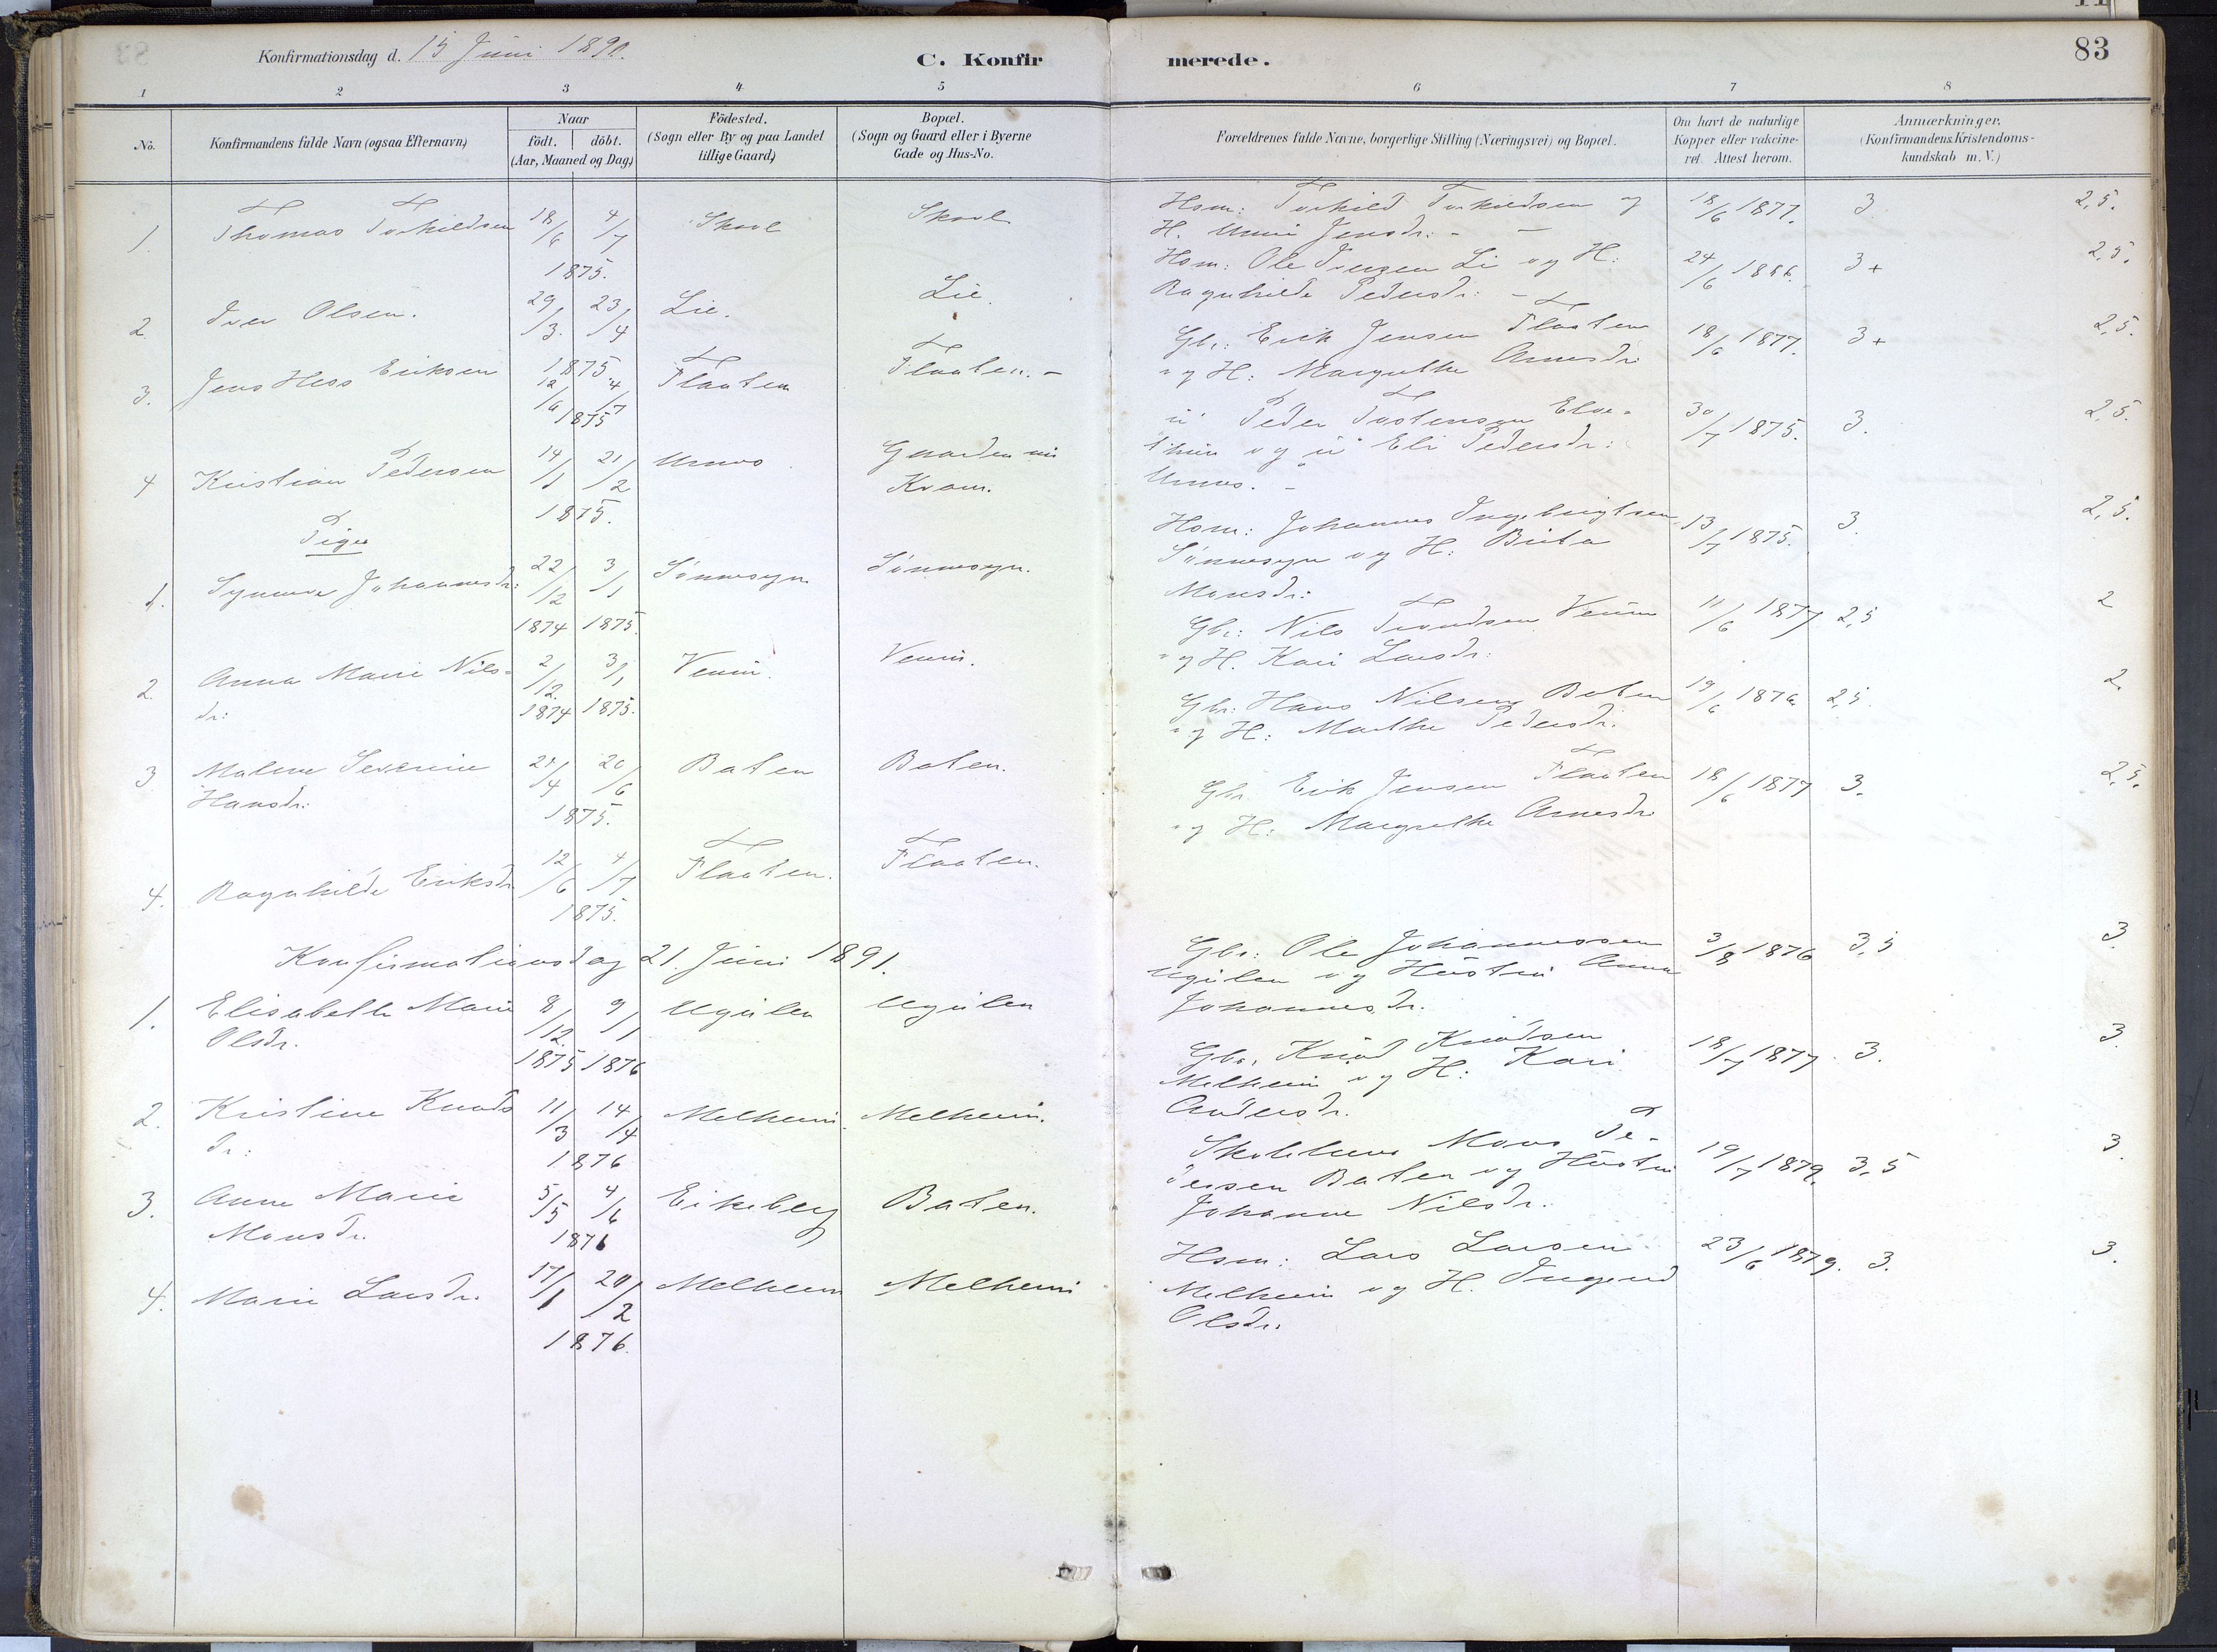 Konfirmationsdag d. 15 Juni 1890.
C. Konfir
merede.
83
1 2 3 4 5 6 7 8
No. Konfirmandens fulde Navn (ogsaa Efternavn) Naar födt. döbt. (Aar, Maaned og Dag)
Födested. (Sogn eller By og paa Landet tillige Gaard)
Bopæl. (Sogn og Gaard eller i Byerne Gade og Hus-No.
Forældrenes fulde Navne, borgerlige Stilling (Næringsvei) og Bopæl.
Om havt de naturlige Kopper eller vakcineret. Attest herom.
Anmærkninger. (Konfirmandens Kristendomskundskab m. V.)
1. Thomas Torkildsen 18/6 4/7 1875. Skaol Skaol
Hsm: Torkild Torkildsen og
H. Unni Jensdr: - -
18/6 1877. 3. 2,5.
2. Iver Olsen. 29/3. 23/4 1875 Lie. Lie.
Hsm: Ole Iversen Li og H:
Ragnhilde Pedersdr: -
24/6 3+ 2,5.
3. Jens Hess Eriksen 12/6 4/7 1875 Flaaten Flaaten. -
Gbr: Erik Jensen Flaaten
og H: Margrethe Arnesdr
18/6 1877. 3+ 2,5.
4 Kristian Pedersen 14/1 21/2 1875. Urnes Kvam.
u' Peder Tostensen
og u' Eli Pedersdr:
Urnes. -
30/7 1875. 3. 2,5.
Piger
1. Synneve Johannesdr: 22/12 1874 3/1 1875. Sønnesyn Sønnesyn.
Hsm: Johannes Ingebrigtsen
Sønnesyn og H: Brita
Monsdr:
13/7 1875. 3. 2,5.
2. Anna Marie Nils-
dr: 2/12. 1874 3/1 1875. Venum. Venum.
Gbr: Nils Trondsen Venum
og H. Kari Larsdr:
11/6 1877 2,5 2
3 Malene Severine
Hansdr: 21/4 20/6 1875. Baten Baten.
Gbr: Hans Nilsen Baten
og H: Marthe Pedersdr.
19/6 1876. 2,5. 2.
4. Ragnhilde Eriksdr 12/6 4/7 1875. Flaaten. Flaaten.
Gbr. Erik Jensen Flaaten
og H: Margrethe Arnesdr
18/6 1877 3. 2,5.
Konfirmationsdag 21. Juni 1891.
1. Elisabeth Marie
Olsdr. 8/12. 1875 9/1 1876 Ugulen Ugulen
Gbr: Ole Johannessen
Ugulen og Hustru Anna
Johannesdr.
3/8 1876 3,5 3.
2. Kristine Knuds
dr: 11/3 14/4 1876 Melheim. Melheim.
Gbr. Knud Knudsen
Melheim og H: Kari
Andersdr.
18/7 1877. 3. 3.
3. Anne Marie
Monsdr. 5/5 4/6 1876 Eikeberg Baten.
Mons Pe-
dersen Baten og Hustru
Johanne Nilsdr.
19/7 1879. 3,5 3.
4. Marie Larsdr. 17/1 20/2 1876. Melheim Melheim
Hsm: Lars Larsen
Melheim og H. Ingerid
Olsdr.
23/6 1879. 3. 3.